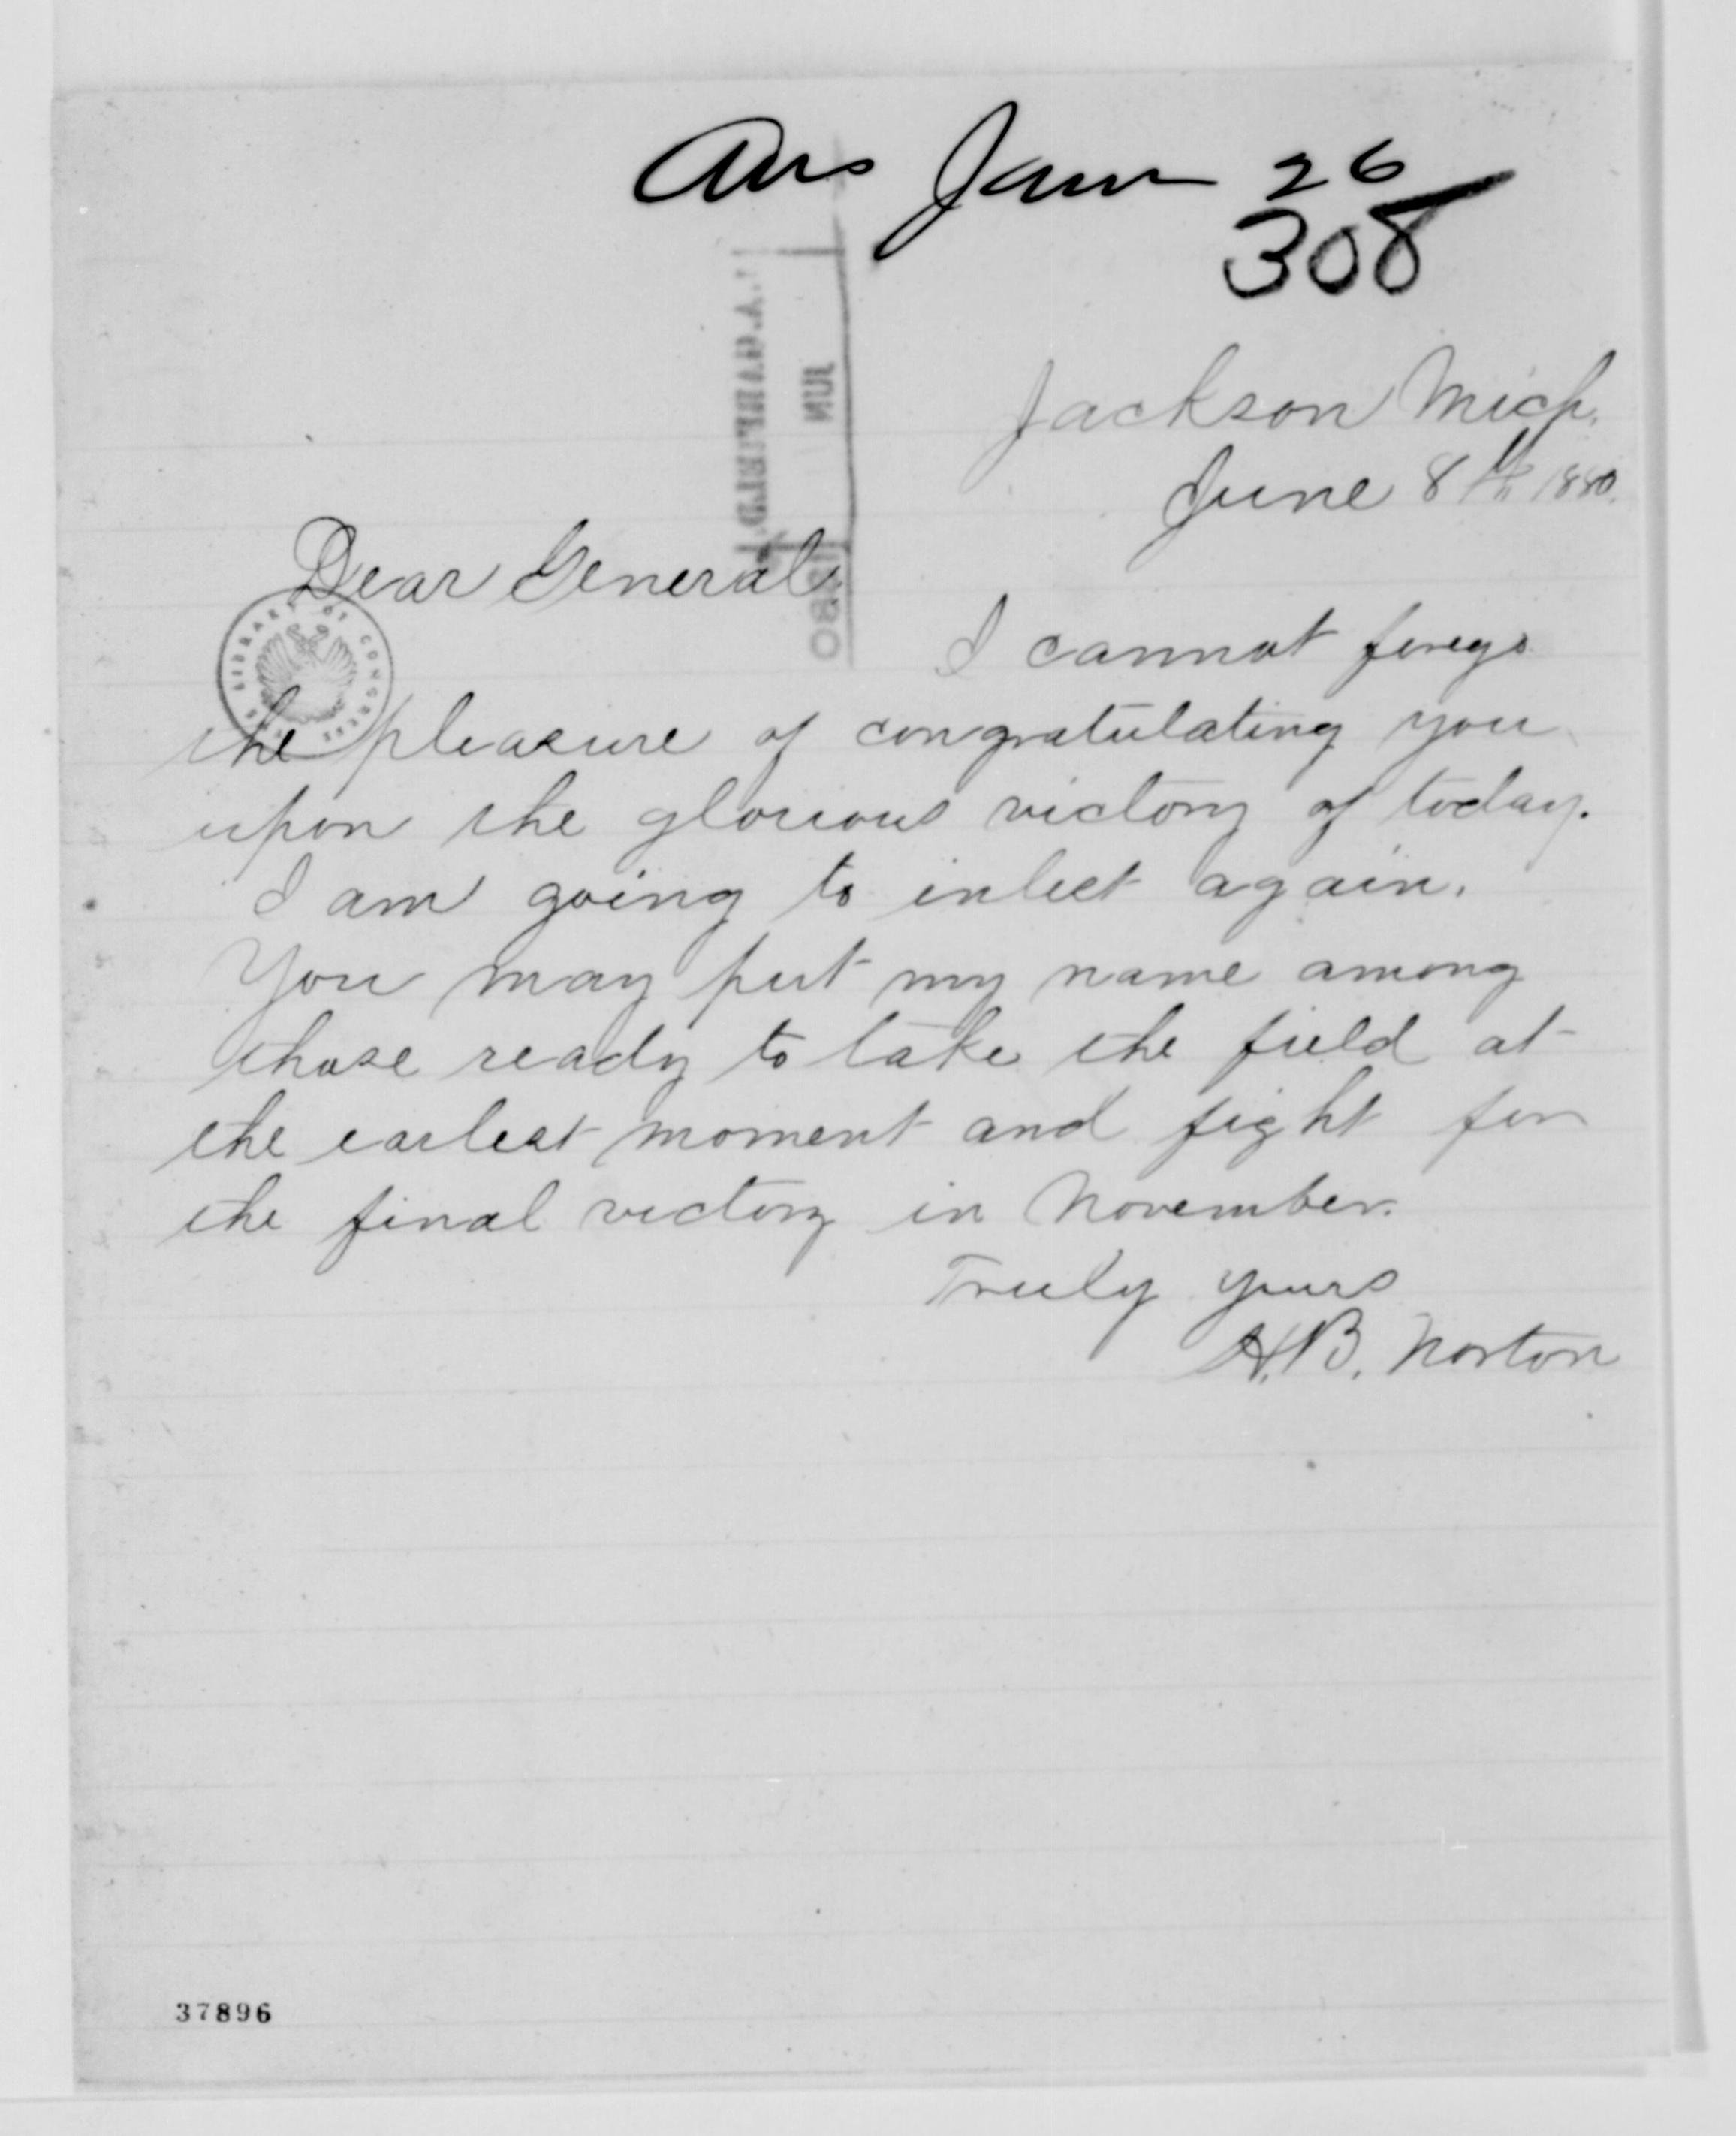 Ans Jun 26
308
Jackson Mich.
June 8th 1880.
Dear General
I cannot forego
the pleasure of congratulating you
upon the glorious victory of today.
I am going to inlest again.
You may put my name among
those ready to take the field at
the earlest moment and fight for
the final victory in November.
Truly yours
H.B. Norton
LIBRARY OF CONGRESS
J. A. GARFIELD
JUN
1880
37896